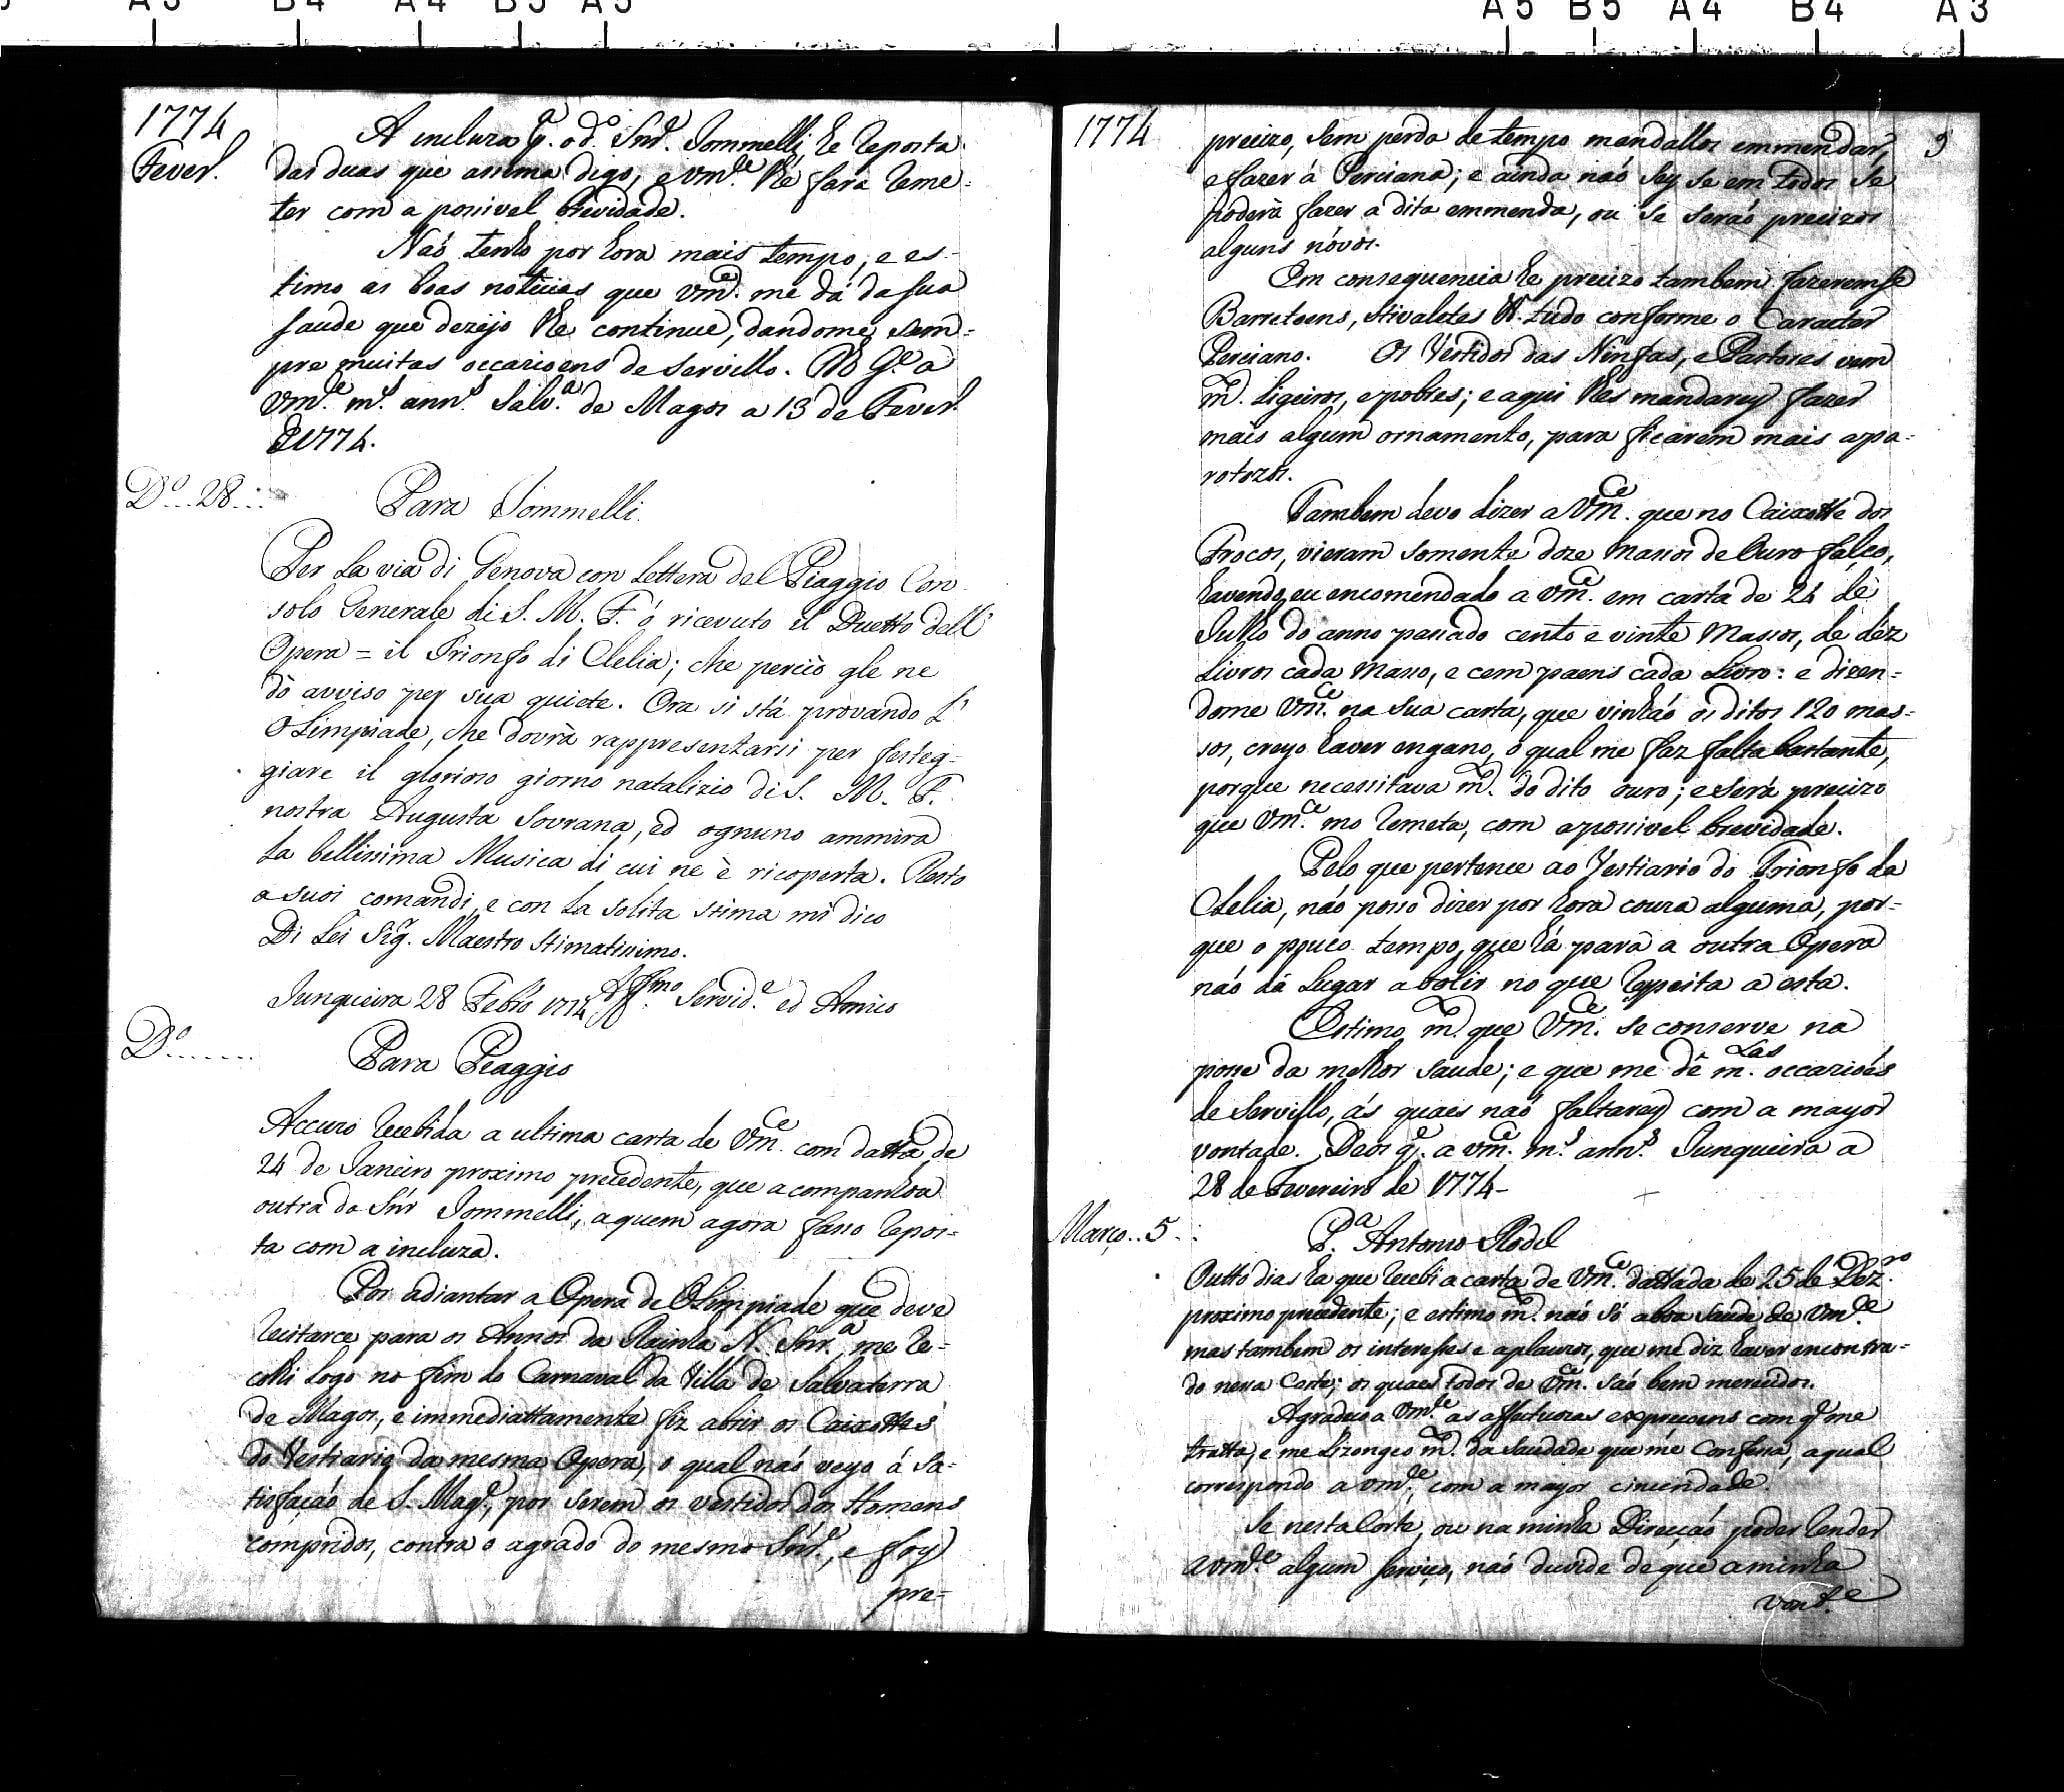 A3 B4 A4 B5 A5
A5 B5 A4 B4 A3
1774
Fever.º
A inclusa p.ª o d.º Snr.' Jommelli he reposta
das duas que assima digo, e Vm.ce lhe fará reme-
ter com a possivel brevidade.
Naõ tenho por hora mais tempo, e es-
timo as boas noticias que Vm.ce me dá da sua
saude que dezejo lhe continue, dandome sem-
pre muitas occazioens de servillo. D.s G.e a
Vm.ce m.s ann.s Salv.ª de Magos a 13 de Fever.º
de 1774.
D.º 28
Para Jommelli
Per la via di Genova con lettera del Piaggio Con
solo Generale di S. M. F. ó ricevuto il Duetto dell'
Opera = il Trionfo di Clelia; che perciò gle ne
dò avviso per sua quiete. Ora si stá provando l'
Olimpiade, che dovrà rappresentarsi per festeg-
giare il glorioso giorno natalizio di S. M. F.
nostra Augusta Sovrana, ed ognuno ammira
la bellissima Musica di cui ne è ricoperta. Resto
a suoi comandi, e con la solita stima mi dico
Di Lei Sig.r Maestro Stimatissimo.
Junqueira 28 Febrº 1774 Aff.mo Servid.e ed Amico
D.º
Para Piaggio
Accuzo recebida a ultima carta de Vm.ce com datta de
24 de Janeiro proximo precedente, que acompanhou
outra do Snr' Jommelli, a quem agora fasso repos-
ta com a incluza.
Por adiantar a Opera de Olimpiade que deve
recitarce para os Annos da Rainha N. Snr.ª, me re-
colhi logo no fim do Carnaval da Villa de Salvaterra
de Mágos, e immediattamente fiz abrir os Caixottes
do Vestiario da mesma Opera, o qual naõ veyo á sa-
tisfaçaõ de S. Mag.e, por serem os vestidos dos Homens
compridos, contra o agrado do mesmo Snr.', e foy
pre-
1774
3
precizo, sem perda de tempo mandallos emmendar,
e fazer á Perciana; e ainda naõ sey se em todos se
poderá fazer a dita emmenda, ou se seraõ precizos
alguns nóvos.
Em consequencia he precizo tambem fazeremse
Barretoens, Stivaletes &.ª tudo conforme o Caracter
Perciano. Os Vestidos das Ninfas, e Pastores vem
m.to ligeiros, e pobres; e aqui lhes mandarey fazer
mais algum ornamento, para ficarem mais apa-
ratozos.
Tambem devo dizer a Vm.ce que no Caixotte dos
Frocos, vieram somente doze massos de Ouro falço,
havendo eu encomendado a Vm.ce em carta de 24 de
Julho do anno passado cento e vinte massos, de déz
livros cada masso, e cem paens cada livro: e dizen-
dome Vm.ce na sua carta, que vinhaõ os ditos 120 mas-
sos, creyo haver engano, o qual me faz falta bastante,
porque necessitava m.to do dito ouro; e será precizo
que Vm.ce mo remeta, com a possivel brevidade.
Pelo que pertence ao Vestiario do Trionfo da
Clelia, naõ posso dizer por hora couza alguma, por-
que o pouco tempo, que há para a outra Opera
naõ dá lugar a bolir no que respeita a esta.
Estimo m.to que Vm.ce se conserve na
posse da melhor saude; e que me dê m.tas occazioẽs
de servillo, ás quaes naõ faltarey com a mayor
vontade. Deos g.e a Vm.ce m.s ann.s Junqueira a
28 de Fevereiro de 1774
Março 5
P.ª Antonio Rodel
Outto dias ha que recebi a carta de Vm.ce dattada de 25 de Dez.ro
proximo precedente; e estimo m.to naõ só a boa saude de Vm.ce
mas tambem os interesses e aplauzos, que me diz haver encontra-
do nessa Corte; os quaes todos de Vm.ce saõ bem merecidos.
Agradeço a Vm.ce as affectuozas expressoens com q.' me
tratta, e me lizongeo m.to da saudade que me confessa, a qual
correspondo a Vm.ce com a mayor cincerdade.
Se nesta Corte, ou na minha Direcçaõ poder render
a Vm.ce algum serviço, naõ duvide de que a minha
vont.e